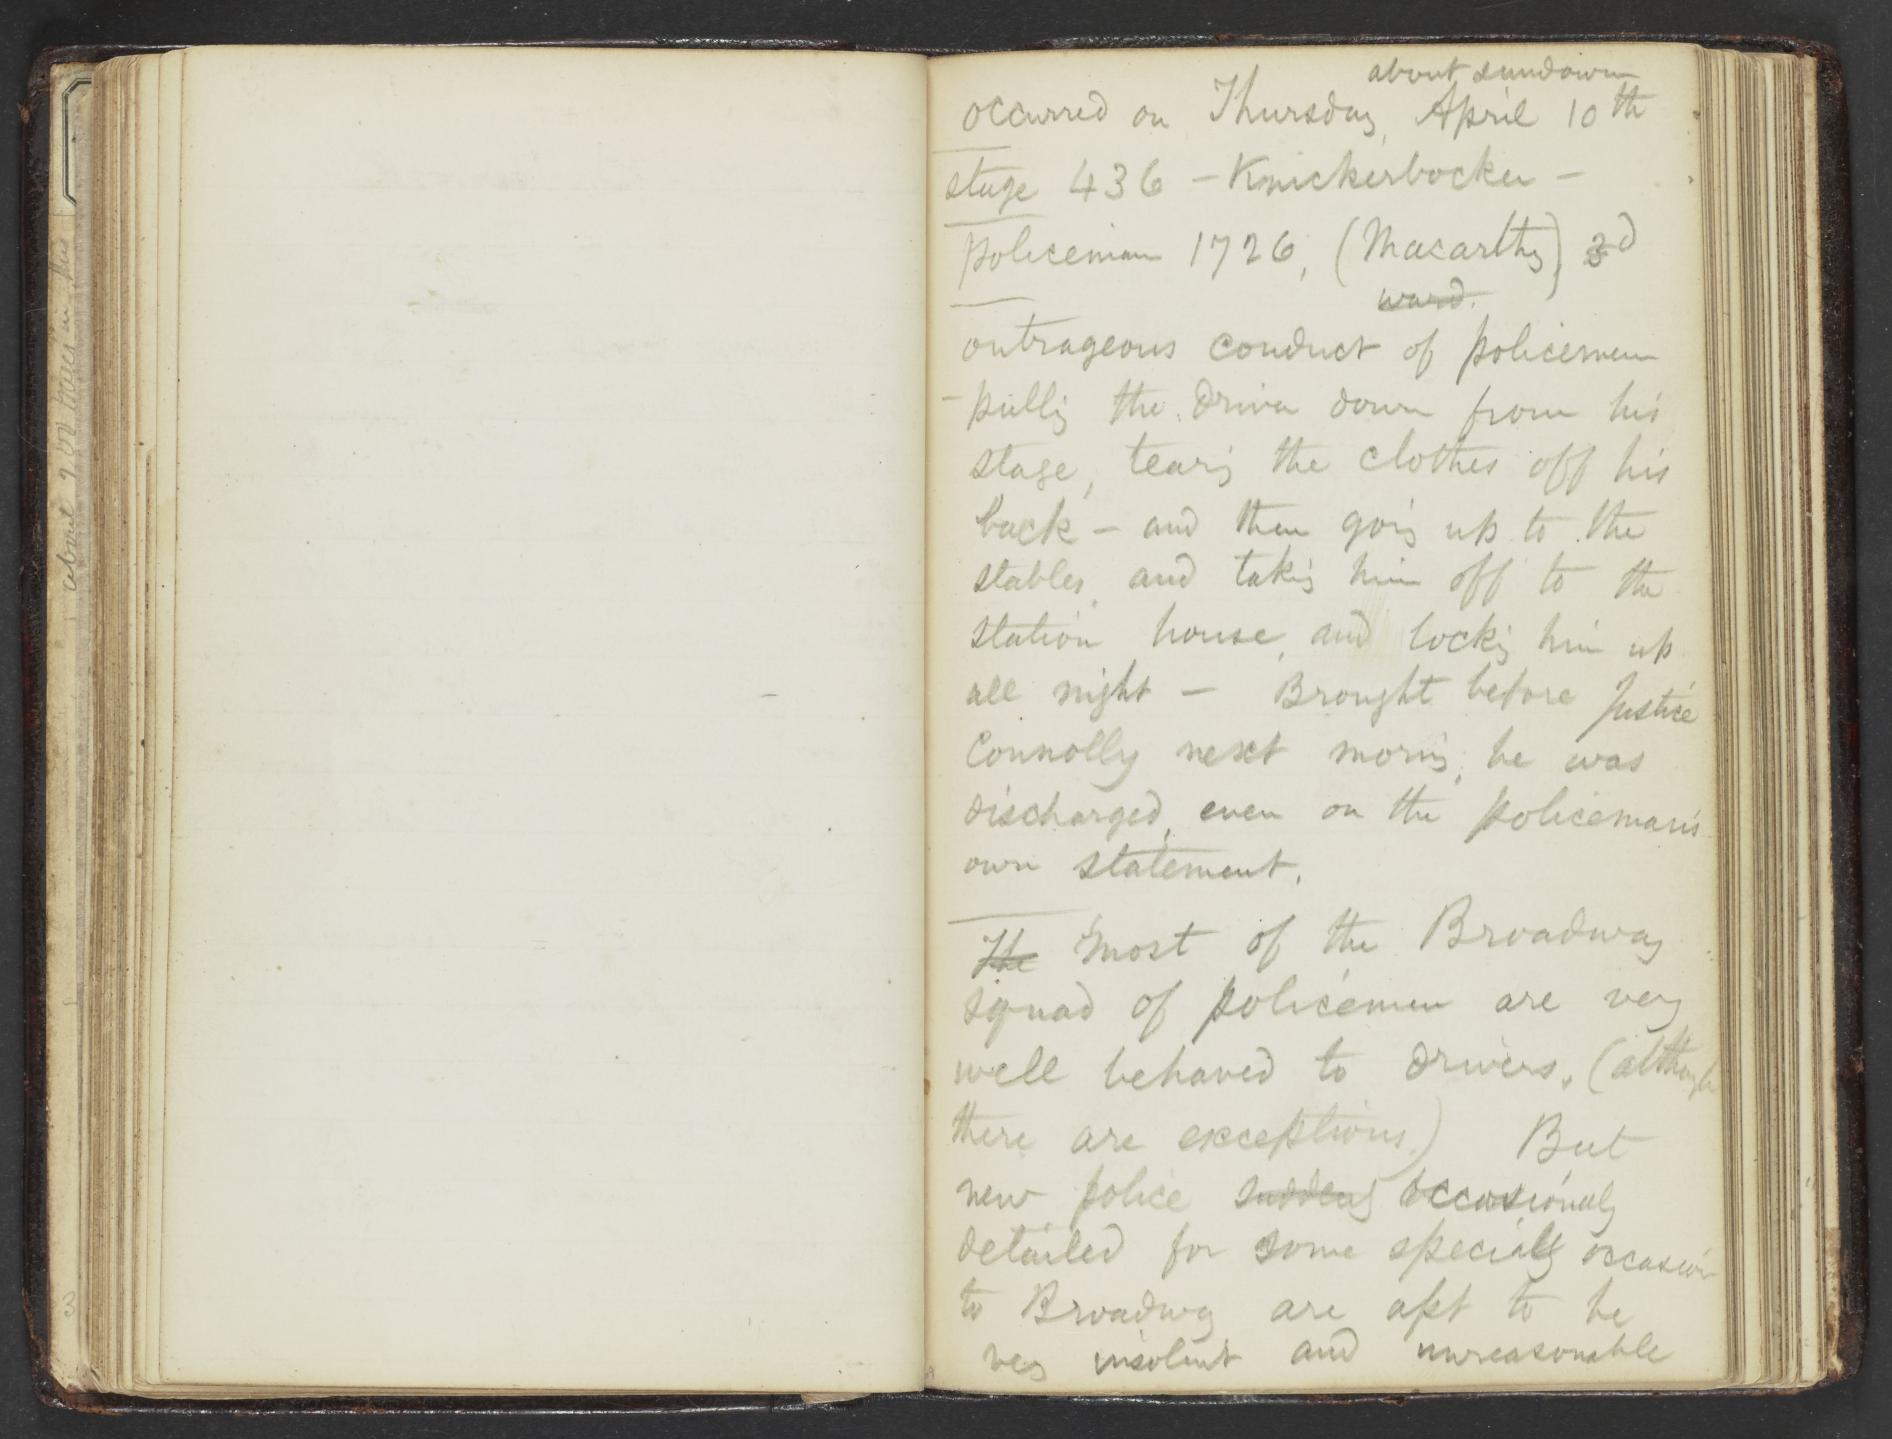 about sundown
occurred on Thursday, April 10th
stage 436 – Knickerbocker –
policeman 1726, (Macarthy), 3d
ward.
outrageous conduct of policemen
– pullig the driver down from his
stage, tearig the clothes off his
back – and then goig up to the
stables, and takig him off to the
station house, and lockig him up
all night – Brought before Justice
Connolly next mornig, he was
discharged, even on the policeman's
own statement.
The Most of the Broadway
squad of policemen are very
well behaved to drivers, (although
there are exceptions.) But
new police suddenly occasionally
detailed for some specially occasion
to Broadway are apt to be
very insolent and unreasonable
about